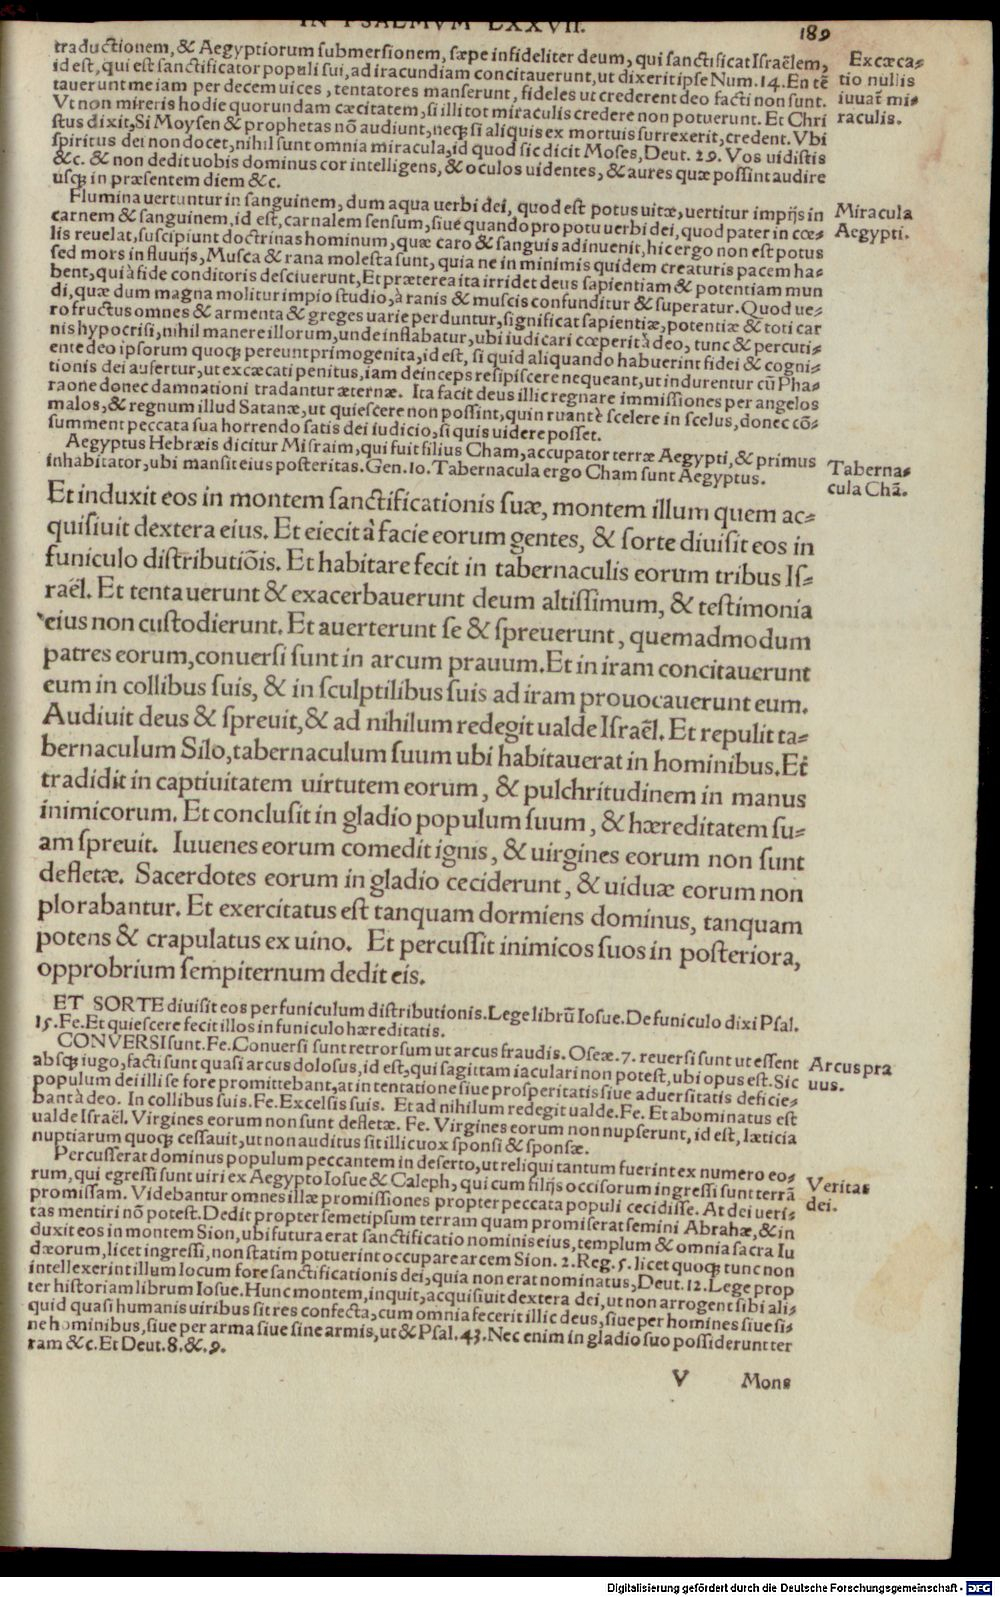 IN PSALMVM LXXVII.
189
traductionem, & Aegyptiorum submersionem, sæpe infideliter deum, qui sanctificat Israëlem,
id est, qui est sanctificator populi sui, ad iracundiam concitauerunt, ut dixerit ipse Num. 14. En tẽ
tauerunt me iam per decem uices, tentatores manserunt, fideles ut crederent deo facti non sunt.
Vt non mireris hodie quorundam cæcitatem, si illi tot miraculis credere non potuerunt. Et Chri
stus dixit, Si Moysen & prophetas nõ audiunt, neqꝫ si aliquis ex mortuis surrexerit, credent. Vbi
spiritus dei non docet, nihil sunt omnia miracula, id quod sic dicit Moses, Deut. 29. Vos uidistis
&c. & non dedit uobis dominus cor intelligens, & oculos uidentes, & aures quæ possint audire
usqꝫ in præsentem diem &c.
Excæca=
tio nullis
iuuat᷑ mi=
raculis.
Flumina uertuntur in sanguinem, dum aqua uerbi dei, quod est potus uitæ, uertitur impijs in
carnem & sanguinem, id est, carnalem sensum, siue quando pro potu uerbi dei, quod pater in cœ=
lis reuelat, suscipiunt doctrinas hominum, quæ caro & sanguis adinuenit, hic ergo non est potus
sed mors in fluuijs, Musca & rana molesta sunt, quia ne in minimis quidem creaturis pacem ha=
bent, qui à fide conditoris desciuerunt, Et præterea ita irridet deus sapientiam & potentiam mun
di, quæ dum magna molitur impio studio, à ranis & muscis confunditur & superatur. Quod ue=
ro fructus omnes & armenta & greges uarie perduntur, significat sapientiæ, potentiæ & toti car
nis hypocrisi, nihil manere illorum, unde inflabatur, ubi iudicari cœperit à deo, tunc & percuti=
ente deo ipsorum quoqꝫ pereunt primogenita, id est, si quid aliquando habuerint fidei & cogni=
tionis dei aufertur, ut excæcati penitus, iam deinceps resipiscere nequeant, ut indurentur cũ Pha=
raone donec damnationi tradantur æternæ. Ita facit deus illic regnare immissiones per angelos
malos, & regnum illud Satanæ, ut quiescere non possint, quin ruant è scelere in scelus, donec cõ=
summent peccata sua horrendo satis dei iudicio, si quis uidere posset.
Miracula
Aegypti.
Aegyptus Hebræis dicitur Misraim, qui fuit filius Cham, accupator terræ Aegypti, & primus
inhabitator, ubi mansit eius posteritas. Gen. 10. Tabernacula ergo Cham sunt Aegyptus.
Taberna=
cula Chã.
Et induxit eos in montem sanctificationis suæ, montem illum quem ac=
quisiuit dextera eius. Et eiecit à facie eorum gentes, & sorte diuisit eos in
funiculo distributiõis. Et habitare fecit in tabernaculis eorum tribus Is=
raël. Et tentauerunt & exacerbauerunt deum altissimum, & testimonia
eius non custodierunt. Et auerterunt se & spreuerunt, quemadmodum
patres eorum, conuersi sunt in arcum prauum. Et in iram concitauerunt
eum in collibus suis, & in sculptilibus suis ad iram prouocauerunt eum.
Audiuit deus & spreuit, & ad nihilum redegit ualde Israël. Et repulit ta=
bernaculum Silo, tabernaculum suum ubi habitauerat in hominibus. Et
tradidit in captiuitatem uirtutem eorum, & pulchritudinem in manus
inimicorum. Et conclusit in gladio populum suum, & hæreditatem su=
am spreuit. Iuuenes eorum comedit ignis, & uirgines eorum non sunt
defletæ. Sacerdotes eorum in gladio ceciderunt, & uiduæ eorum non
plorabantur. Et exercitatus est tanquam dormiens dominus, tanquam
potens & crapulatus ex uino. Et percussit inimicos suos in posteriora,
opprobrium sempiternum dedit eis.
ET SORTE diuisit eos per funiculum distributionis. Lege librũ Iosue. De funiculo dixi Psal.
15. Fe. Et quiescere fecit illos in funiculo hæreditatis.
CONVERSI sunt. Fe. Conuersi sunt retrorsum ut arcus fraudis. Oseæ. 7. reuersi sunt ut essent
absqꝫ iugo, facti sunt quasi arcus dolosus, id est, qui sagittam iaculari non potest, ubi opus est. Sic
populum dei illi se fore promittebant, at in tentatione siue prosperitatis siue aduersitatis deficie=
bant à deo. In collibus suis. Fe. Excelsis suis. Et ad nihilum redegit ualde. Fe. Et abominatus est
ualde Israël. Virgines eorum non sunt defletæ. Fe. Virgines eorum non nupserunt, id est, læticia
nuptiarum quoqꝫ cessauit, ut non auditus sit illic uox sponsi & sponsæ.
Arcus pra
uus.
Percusserat dominus populum peccantem in deserto, ut reliqui tantum fuerint ex numero eo=
rum, qui egressi sunt uiri ex Aegypto Iosue & Caleph, qui cum filijs occisorum ingressi sunt terrã
promissam. Videbantur omnes illæ promissiones propter peccata populi cecidisse. At dei ueri=
tas mentiri nõ potest. Dedit propter semetipsum terram quam promiserat semini Abrahæ, & in
duxit eos in montem Sion, ubi futura erat sanctificatio nominis eius, templum & omnia sacra Iu
dæorum, licet ingressi, non statim potuerint occupare arcem Sion. 2. Reg. 5. licet quoqꝫ tunc non
intellexerint illum locum fore sanctificationis dei, quia non erat nominatus, Deut. 12. Lege prop
ter historiam librum Iosue. Hunc montem, inquit, acquisiuit dextera dei, ut non arrogent sibi ali=
quid quasi humanis uiribus sit res confecta, cum omnia fecerit illic deus, siue per homines siue si=
ne hominibus, siue per arma siue sine armis, ut & Psal. 43. Nec enim in gladio suo possiderunt ter
ram &c. Et Deut. 8. &. 9.
Veritas
dei.
V
Mons
Digitalisierung gefördert durch die Deutsche Forschungsgemeinschaft - DFG